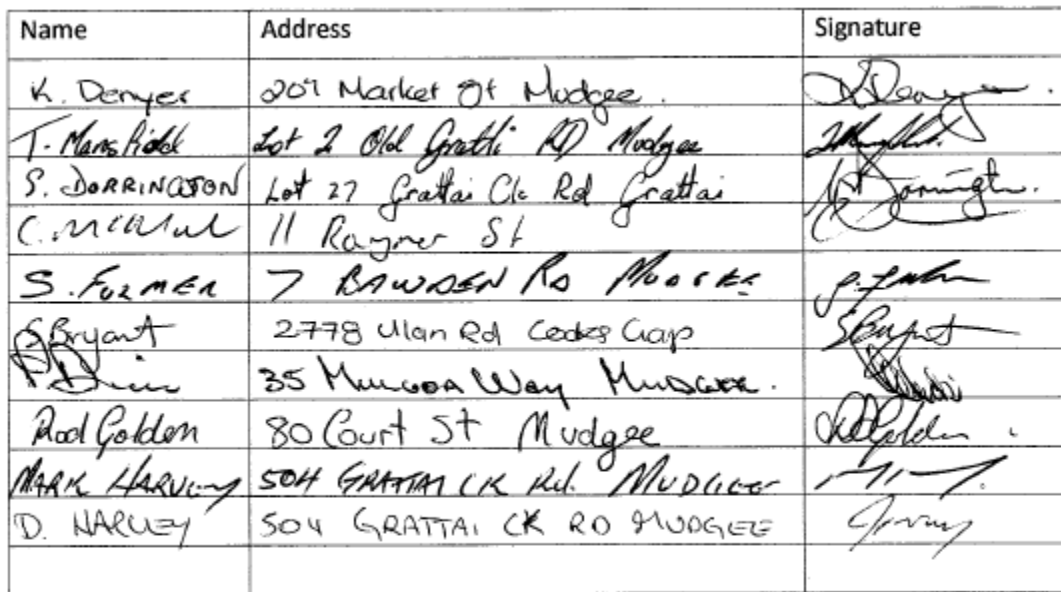 Name Address Signature
K. Denyer 209 Market St Mudgee. K Denyer.
T. Mansfield Lot 2 Old Grattai RD Mudgee
S. DORRINGTON Lot 27 Grattai Ck Rd Grattai Dorrington.
C. 11 Rayner St
S. FUZMER 7 BAWDEN RD MUDGEE
S Bryant 2778 Ulan Rd Cooks Gap S Bryant
35 Way MUDGEE.
Rod Golden 80 Court St Mudgee RGolden.
MARK HARVEY 504 GRATTAI CK Rd. MUDGEE
D. HARVEY 504 GRATTAI CK RD MUDGEE